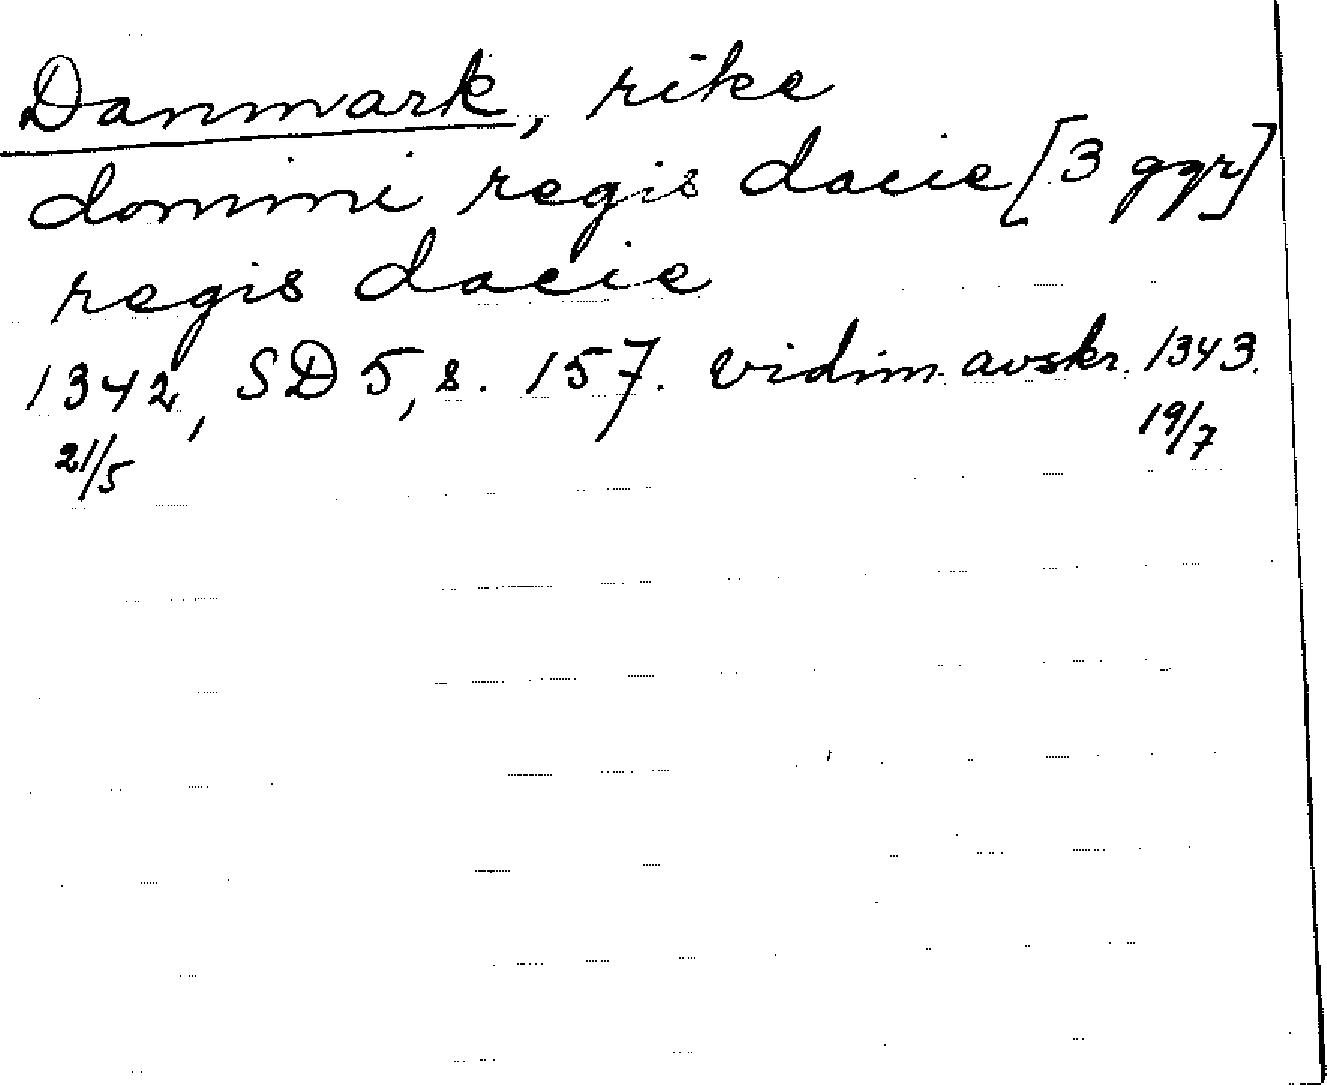 Danmark, rike
domini regis dacie [3 ggr]
regis dacie
1342, SD 5, s. 157. vidim. avskr. 1343.
21/5 19/7